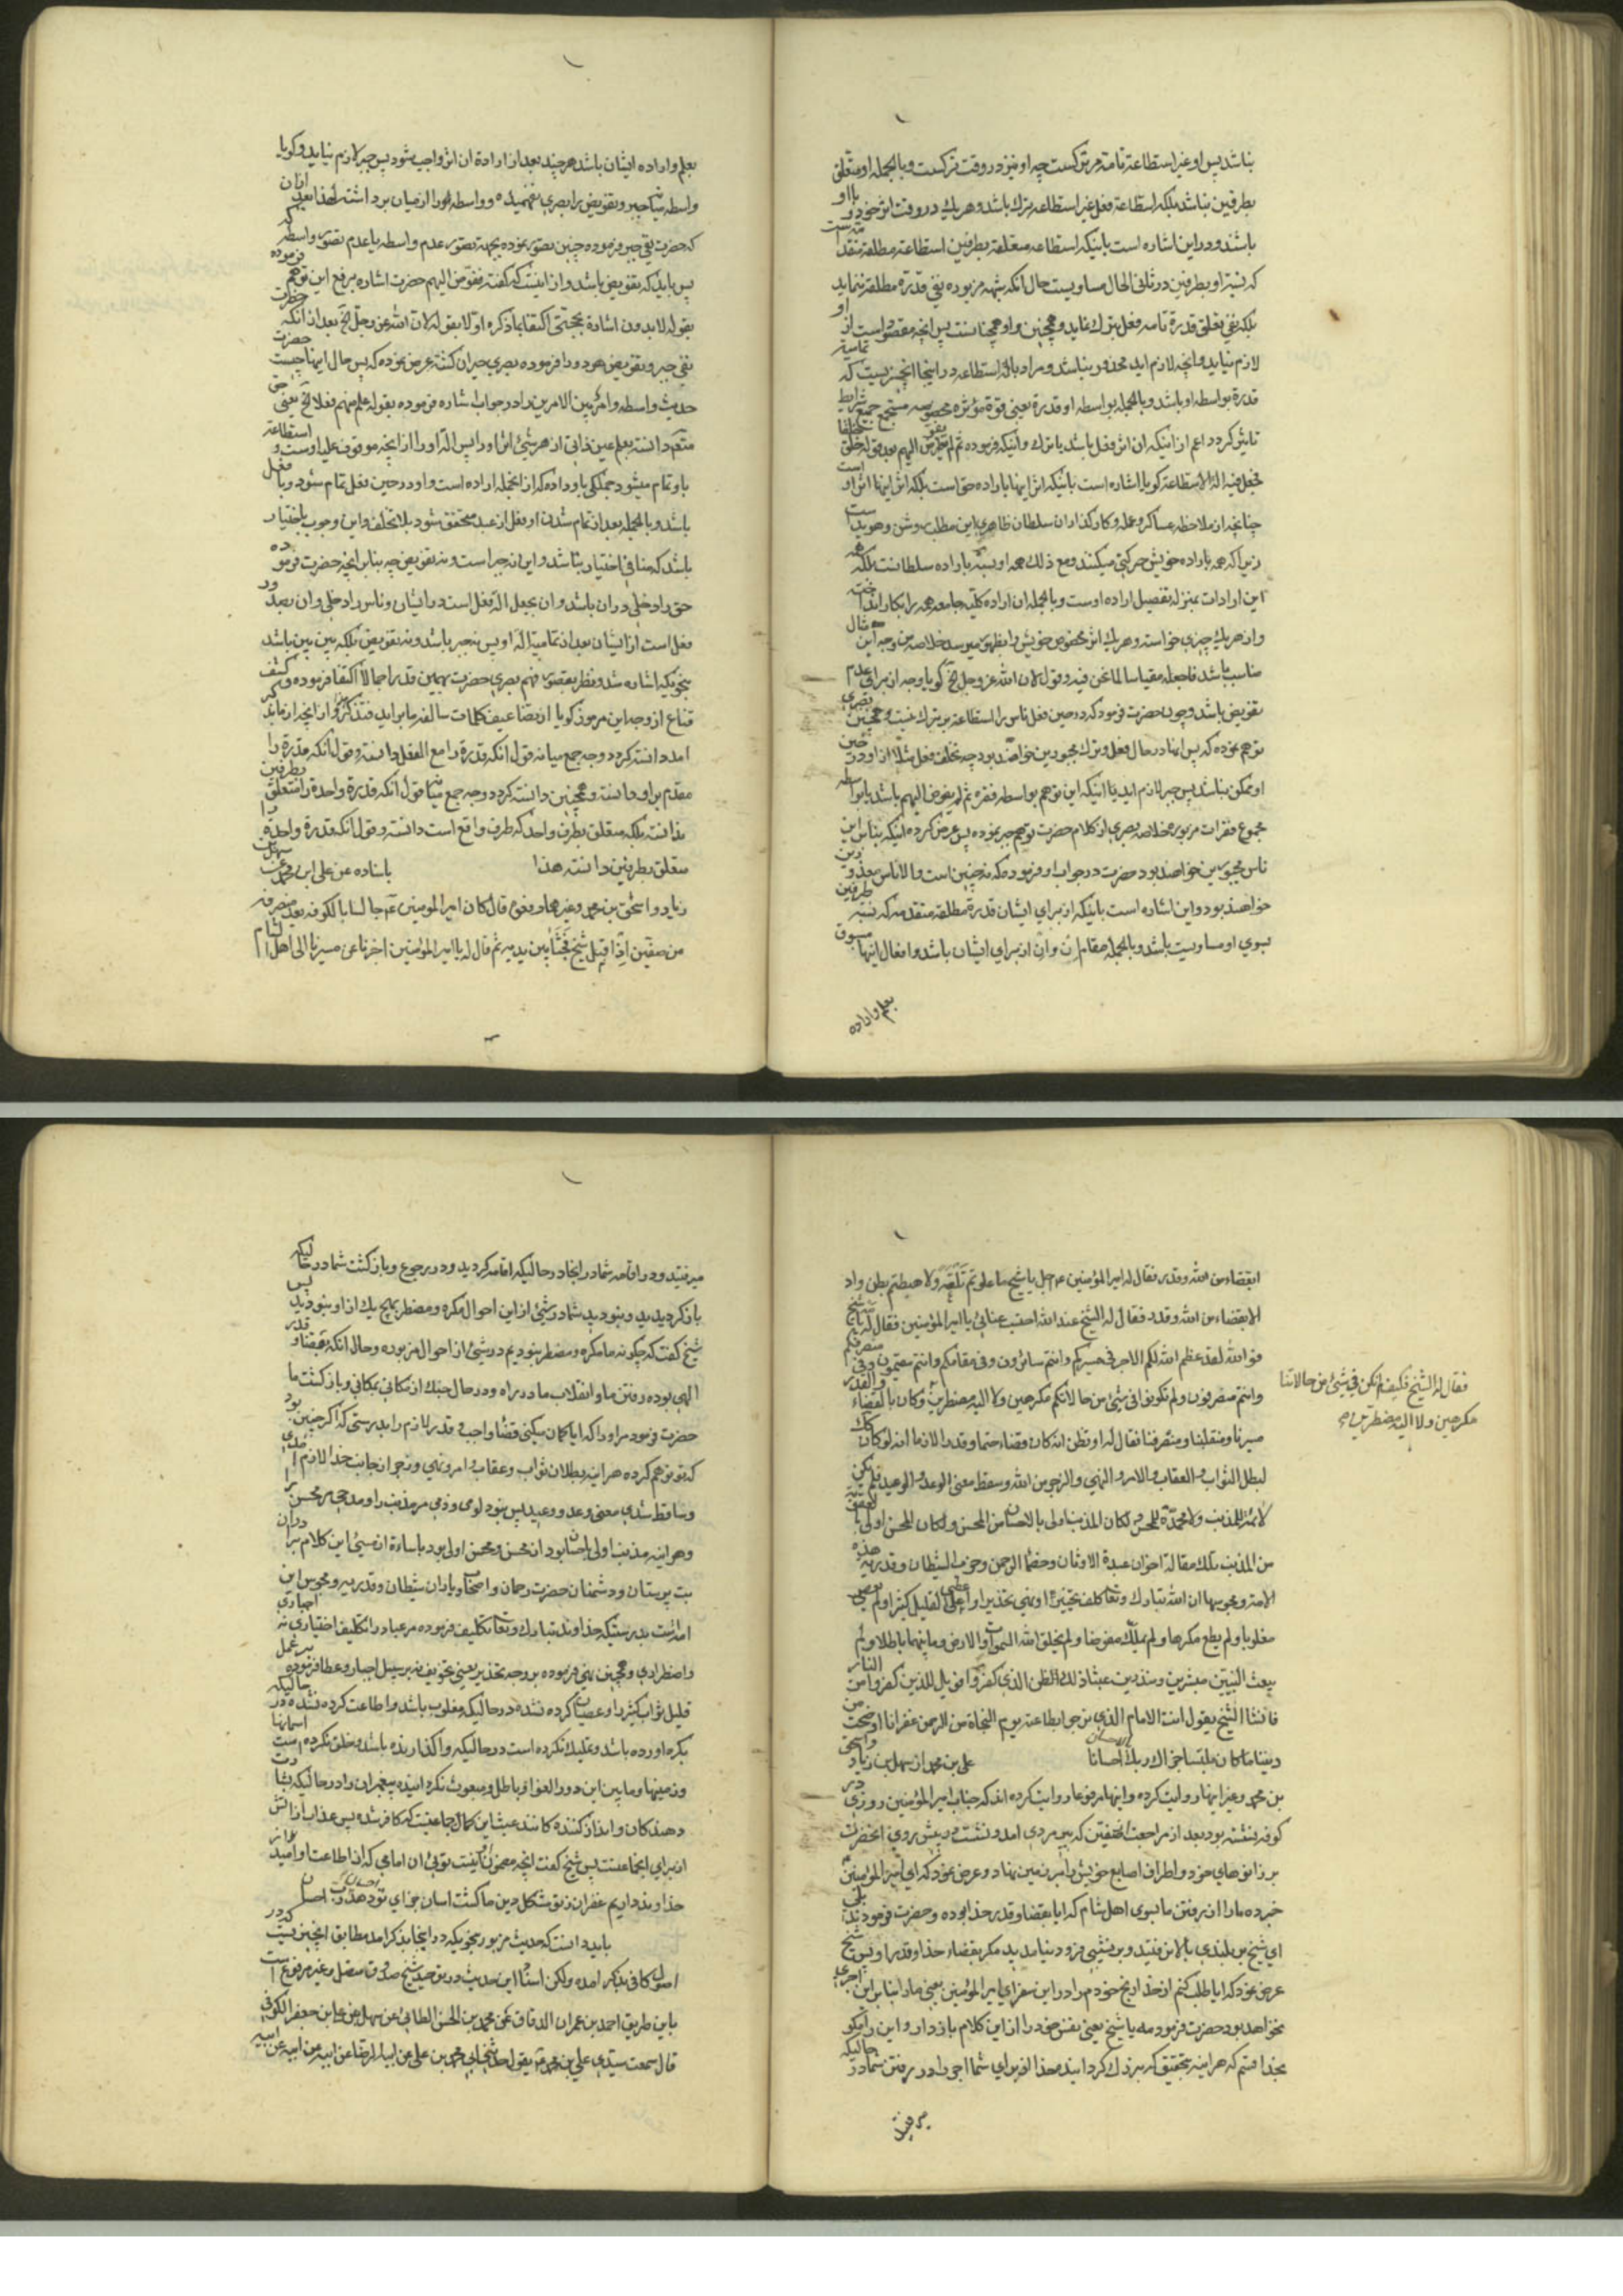 نباشد پس او غیر استطاعة تامه مر ترکست چه او نیز در وقت ترکست و بالجمله او متعلق
بطرفین نباشد بلکه استطاعة فعل غیر استطاعه ترک باشد و هریک در وقت اثر خود و با او
باشند و در این اشاره است باینکه استطاعه متعلقه بطرفین استطاعة مطلقه متقدمه‌ست
که نسبة او بطرفین در ثانی الحال مساویست حال آنکه شبهه مزبوره نفی قدرة مطلقه ننماید
بلکه نفی تعلق قدرة تامه فعل بترک نماید و همچنین و او همچنانست پس آنچه مقصود است از او
لازم نیاید و آنچه لازم اید محذور نباشد و مراد بالة استطاعه در اینجا آنچیزیست که تمامیة
قدرة بواسطه او باشد و بالجمله بواسطه او قدرة یعنی قوة مؤثره مخصوصه مستجمع جمیع شرایط
تاثیر گردد اعم از اینکه ان اثر فعل باشد یا ترک و اینکه فرموده ثم لم یفوض الیهم بعد قوله خلق خلقا
فجعل فیه الة الاستطاعة کویا اشاره است باینکه اثر اینها باراده حق است بلکه اثر اینها اثر او است
چنانچه از ملاحظه عساکر و عمله و کارگذاران سلطان ظاهری این مطلب روشن و هویدا ست
زیرا که همه باراده خویش حرکتی میکنند و مع ذلک همه او بسته باراده سلطانست بلکه همه
این ارادات بمنزله تفصیل اراده اوست و بالجمله ان اراده کلیه جامعه همه را بکار انداخته
و از هریک چیزی خواسته و هریک اثر مخصوص خویش را بظهور میرسد خلاصه من وجه این مثال
مناسب باشد فاجعله مقیاسا لما نحن فیه و قوله لان الله عز و جل الخ کویا وجه از برای عدم
تفویض باشد و چون حضرت فرمود که در حین فعل ناس را استطاعة بر ترک نیست و همچنین بصری
توهم نموده که پس اینها در حال فعل و ترک مجبورین خواهند بود چه تخلف فعل مثلا از او در حین
او ممکن نباشد پس جبر لازم اید یا اینکه این توهم بواسطه فقره ثم لم یفوض الیهم باشد یا بواسطه
مجموع فقرات مزبوره خلاصه بصری از کلام حضرت توهم جبر نموده پس عرض کرده اینکه بنابر این
ناس مجبورین خواهند بود حضرت در جواب او فرموده که نه چنین است و الا ناس معذورین
خواهند بود و این اشاره است باینکه از برای ایشان قدرة مطلقه متقدمه که نسبة طرفین
بسوی او مساویست باشد و بالجمله مقام ان وان از برای ایشان باشد و افعال اینها مسبوق
بعلم و اراده
بعلم و اراده ایشان باشد هر چند بعد از ارادة ان اثر واجب شود پس جبر لازم نیاید و کویا
واسطه میان جبر و تفویض را بصری نفهمیده و واسطه او را از میان برداشته لهذا بعد از ان
که حضرت نفی جبر فرموده چنین تصور نموده بجهة تصور عدم واسطه یا عدم تصور واسطه که
پس باید که تفویض باشد و از اینست که گفته ففوض الیهم حضرت اشاره برفع این توهم فرموده
بقوله لا بدون اشارة بحجتی اکتفا بما ذکره اولا بقوله لان الله عز و جل الخ بعد از آنکه حضرت
نفی جبر و تفویض هر دو را فرموده بصری حیران کشته عرض نموده که پس حال اینها چیست حضرت
حدیث واسطه و امر بین الامرین را در جواب اشاره فرموده بقوله علم منهم فعلا الخ یعنی حق
متقدم دانسته بعلم عین ذاتی از هر شیئ اثر او را پس الة او را از انچه موقوف علیه اوست و استطاعة
باو تمام میشود جملکی باو داده که از انجمله اراده است و او در حین فعل تمام شود و با فعل
باشد و بالجمله بعد از تمام شدن او فعل از عبد متحقق شود بلا تخلف و این وجوب باختیار
باشد که منافی اختیار نباشد و این نه جبر است و نه تفویض چه بنابر انچه حضرت فرموده
حق را دخلی در ان باشد و ان بجعل الة فعل است در ایشان و ناس را دخلی و ان بصدور
فعل است از ایشان بعد از تمامیة الة او پس نه جبر باشد و نه تفویض بلکه بین بین باشد
بنحویکه اشاره شد و نظر بقصور فهم بصری حضرت بهمین قدر اجمالا اکتفا فرموده و کشف
قناع از وجه این مرموز کویا از تضاعیف کلمات سالفه ما براید فتذکر و از انچه از ما بر
امد دانسته کردد وجه جمع میانه قول آنکه قدرة را مع الفعل دانسته و قول آنکه قدرة را
مقدم بر او دانسته و همچنین دانسته کردد وجه جمع میانه قول آنکه قدرة واحدة را متعلق بطرفین
ندانسته بلکه متعلق بطرف واحد که طرف واقع است دانسته و قول آنکه قدرة واحدة را
متعلق بطرفین دانسته هذا باسناده عن علی ابن محمد عن سهل بن
زیاد و اسحق بن محمد و غیرهما رفعوه قال کان امیر المؤمنین ع جالسا بالکوفه بعد منصرفه
من صفین اذ اقبل شیخ فجثا بین یدیه ثم قال له یا امیر المؤمنین اخبرنا عن مسیرنا الی اهل الشام
ابقضاء من الله و قدر فقال له امیر المؤمنین ع اجل یا شیخ ما علوتم تلعة ولا هبطتم بطن واد
الا بقضاء من الله و قدر فقال له الشیخ عند الله احتسب عنائی یا امیر المؤمنین فقال له مه یا شیخ
فو الله لقد عظم الله لکم الاجر فی مسیرکم وانتم سائرون و فی مقامکم وانتم مقیمون و فی منصرفکم
وانتم منصرفون ولم تکونوا فی شیئ من حالاتکم مکرهین ولا الیه مضطرین وکان بالقضاء والقدر
فقال له الشیخ فکیف لم نکن فی شیئ من حالاتنا
مکرهین ولا الیه مضطرین صح
مسیرنا ومنقلبنا ومنصرفنا فقال له او تظن انه کان قضاء حتما وقدرا لازما انه لو کان کذلک
لبطل الثواب والعقاب والامر والنهی والزجر من الله وسقط معنی الوعد والوعید فلم تکن
لائمة للمذنب ولا محمدة للمحسن ولکان المذنب اولی بالاحسان من المحسن ولکان المحسن اولی بالعقوبة
من المذنب تلک مقالة اخوان عبدة الاوثان وخصماء الرحمن وحزب الشیطان وقدریة هذه
الامة ومجوسها ان الله تبارک وتعا کلف تخییرا ونهی تحذیرا واعطی علی القلیل کثیرا ولم یعص
مغلوبا ولم یطع مکرها ولم یملک مفوضا ولم یخلق الله السموات والارض وما بینهما باطلا ولم
یبعث النبیین مبشرین ومنذرین عبثا ذلک الظن الذی کفروا فویل للذین کفروا من النار
فانشا الشیخ یقول انت الامام الذی نرجو بطاعته یوم النجاة من الرحمن غفرانا اوضحت من
دیننا ما کان ملتبسا جزاک ربک بالاحسان احسانا علی بن محمد از سهل بن زیاد و اسحق
بن محمد و غیر اینها روایت کرده و اینها مرفوعا روایت کرده اند که جناب امیر المؤمنین روزی در
کوفه نشسته بود بعد از مراجعت از صفین که پیر مردی امد و نشست در پیش روی انحضرت
بر زانوهای خود و اطراف اصابع خویش را بر زمین نهاد و عرض نمود که ای امیر المؤمنین
خبر ده ما را از رفتن ما بسوی اهل شام که ایا بقضا و قدر خدا بوده و حضرت فرمودند بلی
ای شیخ بر بلندی بالا نرفتید و بر نشیبی فرود نیامدید مکر بقضاء خدا و قدر او پس شیخ
عرض نمود که ایا طلب کنم از خدا رنج خودم را در این سفر ای امیر المؤمنین یعنی مارا بنا بر این اجری
نخواهد بود حضرت فرمود مه یا شیخ یعنی نفس خود را از این کلام باز دار و این را مکو
بخدا قسم که هراینه بتحقیق که بزرک کردانید خدا از برای شما اجر را در رفتن شما در حالیکه
میرفتید
میرفتید و در اقامه شما در انجا در حالیکه اقامه کردید و در رجوع و بازکشت شما در حالیکه
باز کردیدید و نبودید شما در شیئی از این احوال مکره و مضطر بهیچ یک از او نبودید پس
شیخ کفت که چکونه ما مکره و مضطر نبودیم در شیئ از احوال مزبوره و حال آنکه بقضا و قدر
الهی بوده رفتن ما و انقلاب ما در راه و در حال جنک از مکانی بمکانی و بازکشت ما
حضرت فرمود مر او را که ایا کمان میکنی قضا واجب و قدر لازم را بدرستی که اکر چنین بود
که تو توهم کرده هراینه بطلان ثواب و عقاب و امر و نهی و زجر از جانب خدا لازم امدی
و ساقط شدی معنی وعد و وعید پس نبود لومی و ذمی مر مذنب را و مدحی مر محسن را
و هراینه مذنب اولی باحسان بود از محسن و محسن اولی بود باساءة از مسیئ این کلام برادران
بت پرستان و دشمنان حضرت رحمان و اصحاب و یاران شیطان و قدریه و مجوس این
امتست بدرستیکه خداوند تبارک و تعا تکلیف فرموده مر عباد را تکلیف اختیاری نه اجباری
و اضطراری و همچنین نهی فرموده بر وجه تحذیر یعنی تخویف نه بر سبیل اجبار و عطا فرموده بر عمل
قلیل ثواب کثیر را و عصیان کرده نشده در حالیکه مغلوب باشد و اطاعت کرده نشده در حالیکه
بکره اورده باشد و تملیک نکرده است در حالیکه واکذارنده باشد و خلق نکرده است اسمانها
و زمینها و ما بین این دو را لغو و باطل و مبعوث نکردانیده پیغمبران را در حالیکه بشارت
دهندکان و انذار کننده کانند عبث این کمان جماعتیست که کافر شده پس عذاب از اتش
از برای انجماعتست پس شیخ کفت انچه مضمون او اینست توئی ان امامی که از اطاعت او امید غفران
خداوند داریم غفران ز تو مشکل دین ما کشت اسان جزای تو دهد رب احسان احسان
باید دانست که حدیث مزبور بنحویکه در اینجا ذکر امد مطابق انچیزیست که در
اصول کافی بذکر امده ولکن اسناد این حدیث در توحید شیخ صدوق متصل و غیر مرفوع است
باین طریق احمد بن عمران الدقاق عن محمد بن الحسن الطائی عن سهل عن علی بن جعفر الکوفی
قال سمعت سیدی علی بن محمد ع یقول حدثنی ابی محمد بن علی عن ابیه الرضا عن ابیه عن ابیه عن ابیه